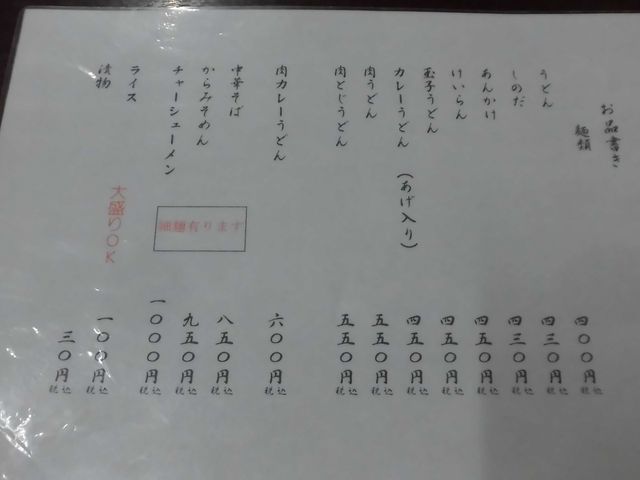 お品書き
麺類
うどん 四〇〇円 税込
しのだ 四三〇円 税込
あんかけ 四三〇円 税込
けいらん 四五〇円 税込
玉子うどん 四五〇円 税込
カレーうどん (あげ入り) 四五〇円 税込
肉うどん 五五〇円 税込
肉とじうどん 五五〇円 税込
肉カレーうどん 六〇〇円 税込
中華そば 八五〇円 税込
からみそめん 九五〇円 税込
チャーシェーメン 一〇〇〇円 税込
細麺有ります
ライス 一〇〇円 税込
大盛りOK
漬物 三〇円 税込